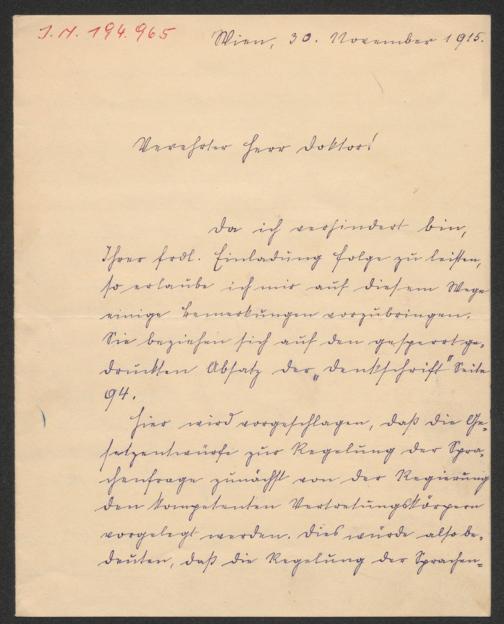 J.N. 194.965
Wien, 30. November 1915.
Verehrter Herr Doktor!
Da ich verhindert bin,
Ihrer frdl. Einladung Folge zu leisten,
so erlaube ich mir auf diesem Wege
einige Bemerkungen vorzubringen.
Sie beziehen sich auf den gesperrt ge-
druckten Absatz der „Denkschrift“ Seite
94.
Hier wird vorgeschlagen, daß die Ge-
setzentwürfe zur Regelung der Spra-
chenfrage zunächst von der Regierung
den kompetenten Vertretungskörpern
vorgelegt werden. Dies würde also be-
deuten, daß die Regelung der Sprachen-